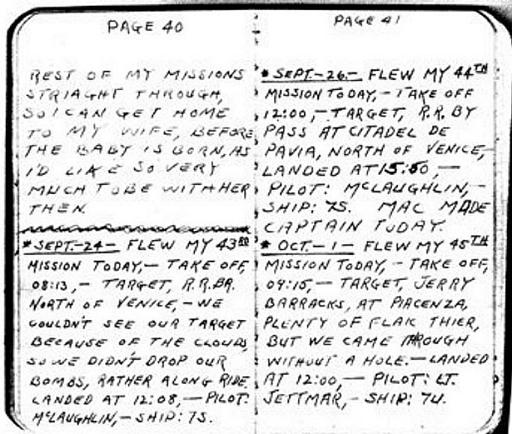 PAGE 40
REST OF MY MISSIONS
STRIAGHT THROUGH,
SO I CAN GET HOME
TO MY WIFE, BEFORE
THE BABY IS BORN, AS
I'D LIKE SO VERY
MUCH TO BE WITH HER
THEN.
* SEPT.-24- FLEW MY 43RD
MISSION TODAY,- TAKE OFF,
08:13,- TARGET, R.R. BR.
NORTH OF VENICE,- WE
COULDN'T SEE OUR TARGET
BECAUSE OF THE CLOUDS,
SO WE DIDN'T DROP OUR
BOMBS, RATHER A LONG RIDE.
LANDED AT 12:08,- PILOT:
McLAUGHLIN,- SHIP: 7S.
PAGE 41
* SEPT.-26- FLEW MY 44TH
MISSION TODAY,- TAKE OFF
12:00,- TARGET, R.R. BY
PASS AT CITADEL DE
PAVIA, NORTH OF VENICE,-
LANDED AT 15:50,-
PILOT: McLAUGHLIN,-
SHIP: 7S. MAC MADE
CAPTAIN TODAY.
* OCT.-1- FLEW MY 45TH
MISSION TODAY,- TAKE OFF,
09:15,- TARGET, JERRY
BARRACKS, AT PIACENZA,
PLENTY OF FLAK THIER,
BUT WE CAME THROUGH
WITHOUT A HOLE.- LANDED
AT 12:00,- PILOT: LT.
JETTMAR,- SHIP: 7U.